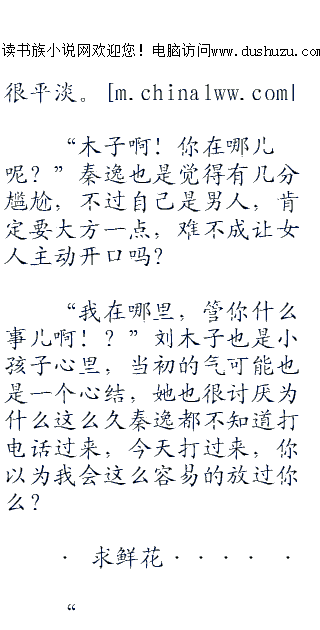 读书族小说网欢迎您！电脑访问www.dushuzu.com
很平淡。[m.china1ww.com|
“木子啊！你在哪儿
呢？”秦逸也是觉得有几分
尴尬，不过自己是男人，肯
定要大方一点，难不成让女
人主动开口吗？
“我在哪里，管你什么
事儿啊！？”刘木子也是小
孩子心里，当初的气可能也
是一个心结，她也很讨厌为
什么这么久秦逸都不知道打
电话过来，今天打过来，你
以为我会这么容易的放过你
么？
· 求鲜花 · · · · ·
“